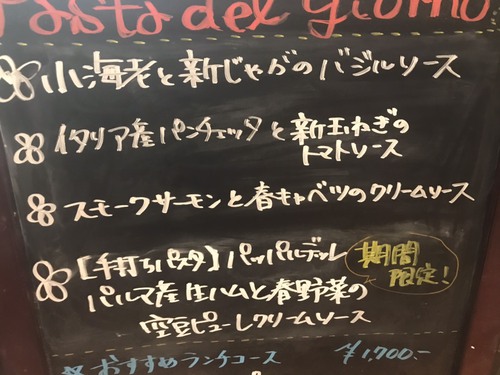 Pasta del Giorno
小海老と新じゃがのバジルソース
イタリア産パンチェッタと新玉ねぎの
トマトソース
スモークサーモンと春キャベツのクリームソース
【手打ちパスタ】パッパルデッレ
期間
限定!
パルマ産生ハムと春野菜の
空豆ピューレクリームソース
おすすめランチコース ¥1,700-